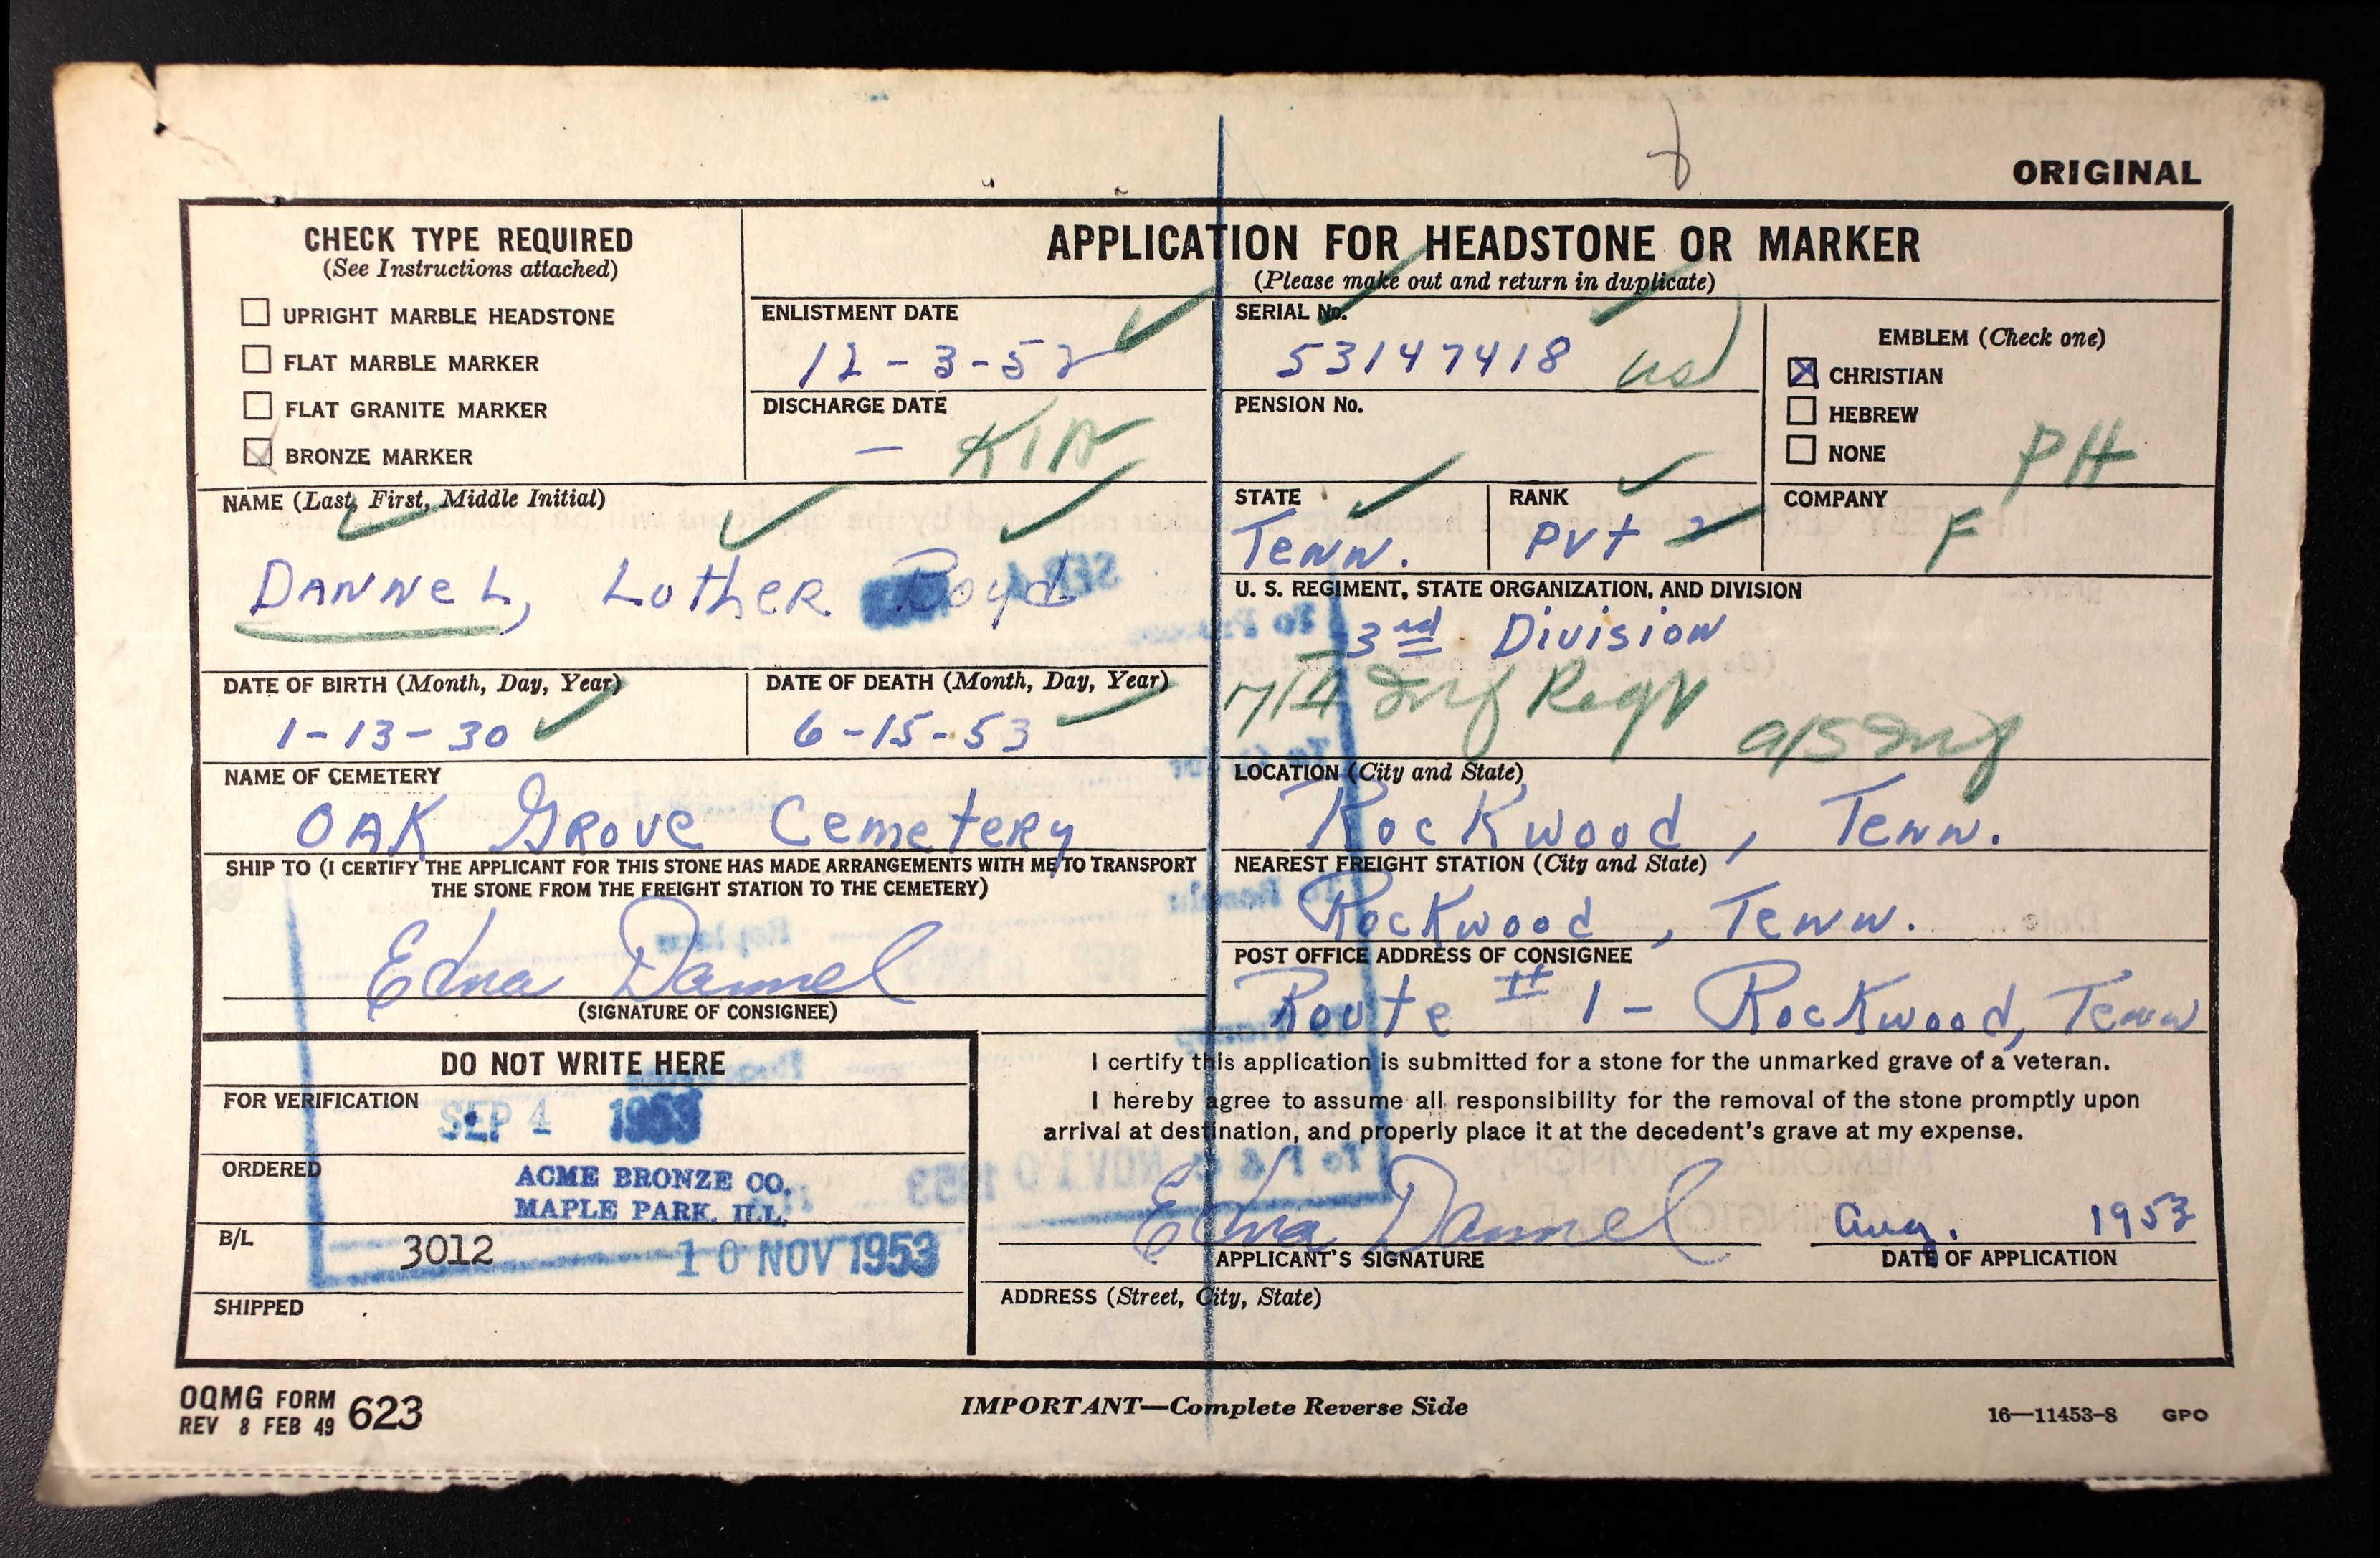 ORIGINAL
CHECK TYPE REQUIRED
(See Instructions attached)
UPRIGHT MARBLE HEADSTONE
FLAT MARBLE MARKER
FLAT GRANITE MARKER
BRONZE MARKER
APPLICATION FOR HEADSTONE OR MARKER
(Please make out and return in duplicate)
ENLISTMENT DATE
12-3-52
DISCHARGE DATE
— KIA
SERIAL No.
53147418 US
PENSION No.
EMBLEM (Check one)
CHRISTIAN
HEBREW
NONE
PH
NAME (Last, First, Middle Initial)
DANNEL, Luther Boyd
STATE
Tenn.
RANK
Pvt 2
COMPANY
F
U. S. REGIMENT, STATE ORGANIZATION, AND DIVISION
3rd Division
Inf Regt
DATE OF BIRTH (Month, Day, Year)
1-13-30
DATE OF DEATH (Month, Day, Year)
6-15-53
NAME OF CEMETERY
OAK Grove Cemetery
LOCATION (City and State)
Rockwood, Tenn.
SHIP TO (I CERTIFY THE APPLICANT FOR THIS STONE HAS MADE ARRANGEMENTS WITH ME TO TRANSPORT
THE STONE FROM THE FREIGHT STATION TO THE CEMETERY)
Edna Dannel
(SIGNATURE OF CONSIGNEE)
NEAREST FREIGHT STATION (City and State)
Rockwood, Tenn.
POST OFFICE ADDRESS OF CONSIGNEE
Route # 1 - Rockwood, Tenn
DO NOT WRITE HERE
FOR VERIFICATION
SEP 4 1953
ORDERED
ACME BRONZE CO.
MAPLE PARK, ILL.
B/L
3012
10 NOV 1953
SHIPPED
I certify this application is submitted for a stone for the unmarked grave of a veteran.
I hereby agree to assume all responsibility for the removal of the stone promptly upon
arrival at destination, and properly place it at the decedent's grave at my expense.
Edna Dannel
Aug. 1953
APPLICANT'S SIGNATURE
DATE OF APPLICATION
ADDRESS (Street, City, State)
OQMG FORM 623
REV 8 FEB 49
IMPORTANT—Complete Reverse Side
16—11453-8 GPO